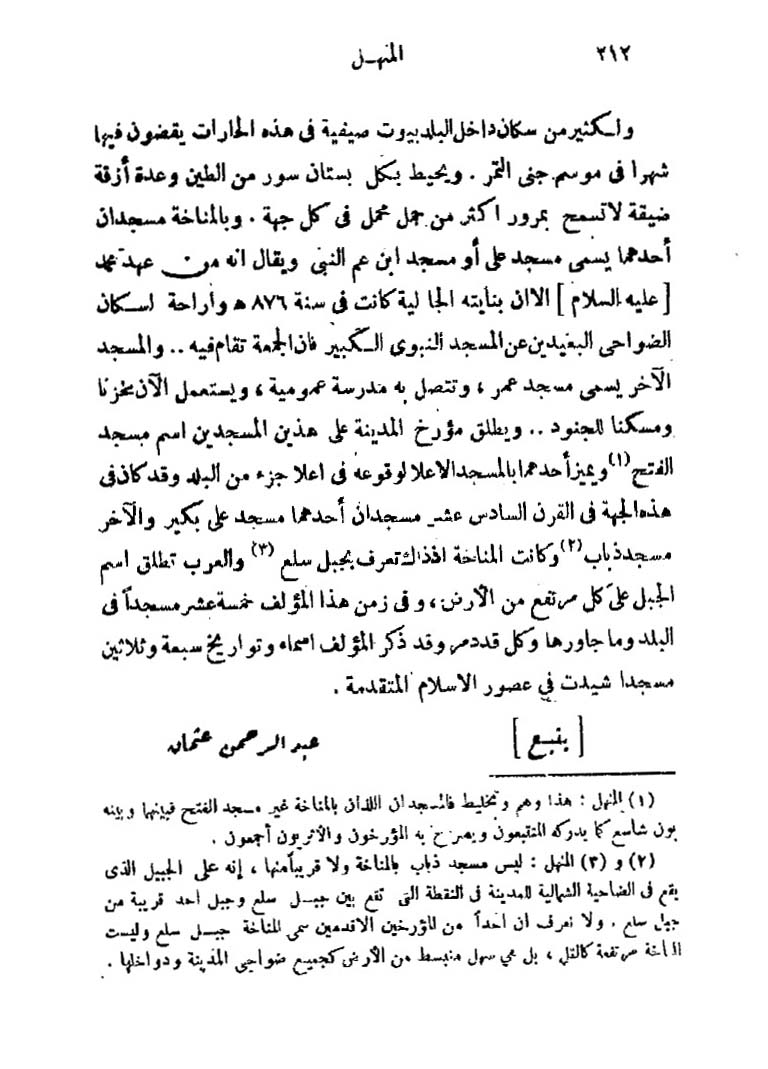 ٢١٢
المنهل
والكثير من سكان داخل البلد بيوت صيفية فى هذه الحارات يقضون فيها
شهرا فى موسم جنى التمر . ويحيط بكل بستان سور من الطين وعدة أزقة
ضيقة لاتسمح بمرور اكثر من جمل محمل فى كل جهة . وبالمناخة مسجدان
أحدهما يسمى مسجد على أو مسجد ابن عم النبى ويقال انه من عهد محمد
[ عليه السلام ] الاان بنايته الجالية كانت فى سنة ٨٧٦ ه واراحة لسكان
الضواحى البعيدين عن المسجد النبوى الكبير فان الجمعة تقام فيه .. والمسجد
الآخر يسمى مسجد عمر ، وتتصل به مدرسة عمومية ، ويستعمل الآن مخزنا
ومسكنا للجنود .. ويطلق مؤرخ المدينة على هذين المسجدين اسم مسجد
الفتح (١) ويميز أحدهما بالمسجد الاعلا لوقوعه فى اعلا جزء من البلد وقد كان فى
هذه الجهة فى القرن السادس عشر مسجدان أحدهما مسجد على بكير والآخر
مسجد ذباب (٢) وكانت المناخة اذذاك تعرف بجبل سلع (٣) والعرب تطلق اسم
الجبل على كل مرتفع من الأرض ، وفى زمن هذا المؤلف خمسة عشر مسجداً فى
البلد وما جاورها وكل قددمر وقد ذكر المؤلف اسماء وتواريخ سبعة وثلاثين
مسجدا شيدت في عصور الاسلام المتقدمة .
[ يتبع ]
عبد الرحمن عثمان
(١) المنهل : هذا وهم وتخليط فالمسجدان اللذان بالمناخة غير مسجد الفتح فبينهما وبينه
بون شاسع كما يدركه المتتبعون ويصرح به المؤرخون والأثريون أجمعون .
(٢) و (٣) المنهل : ليس مسجد ذباب بالمناخة ولا قريباً منها ، إنه على الجبيل الذى
يقع فى الضاحية الشمالية للمدينة فى النقطة التى تقع بين جبل سلع وجبل احد قريبة من
جبل سلع . ولا نعرف ان احداً من المؤرخين الاقدمين سمى المناخة جبل سلع وليست
المناخة مرتفعة كالتل ، بل هي سهل منبسط من الأرض كجميع ضواحى المدينة ودواخلها .